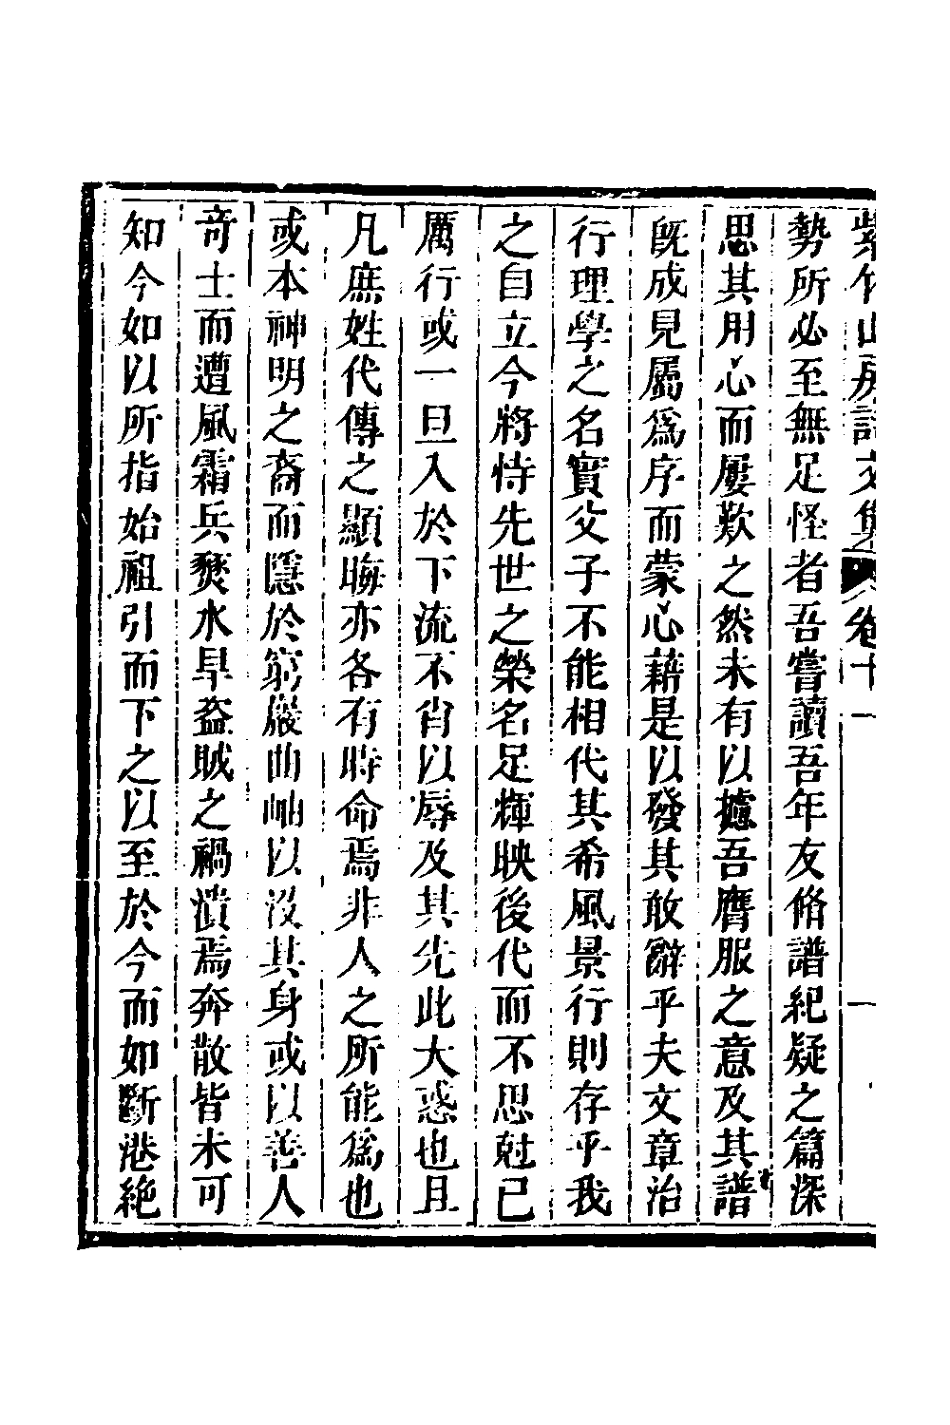 紫竹山房詩文集 卷十一
勢所必至無足怪者吾嘗讀吾年友脩譜紀疑之篇深
思其用心而屢歎之然未有以攄吾膺服之意及其譜
旣成見屬爲序而蒙心藉是以發其敢辭乎夫文章治
行理學之名實父子不能相代其希風景行則存乎我
之自立今將恃先世之榮名足輝映後代而不思尅己
厲行或一旦入於下流不肖以辱及其先此大惑也且
凡庶姓代傳之顯晦亦各有時命焉非人之所能爲也
或本神明之裔而隱於窮巖曲岫以沒其身或以善人
竒士而遭風霜兵燹水旱盜賊之禍潰焉奔散皆未可
知今如以所指始祖引而下之以至於今而如斷港絶